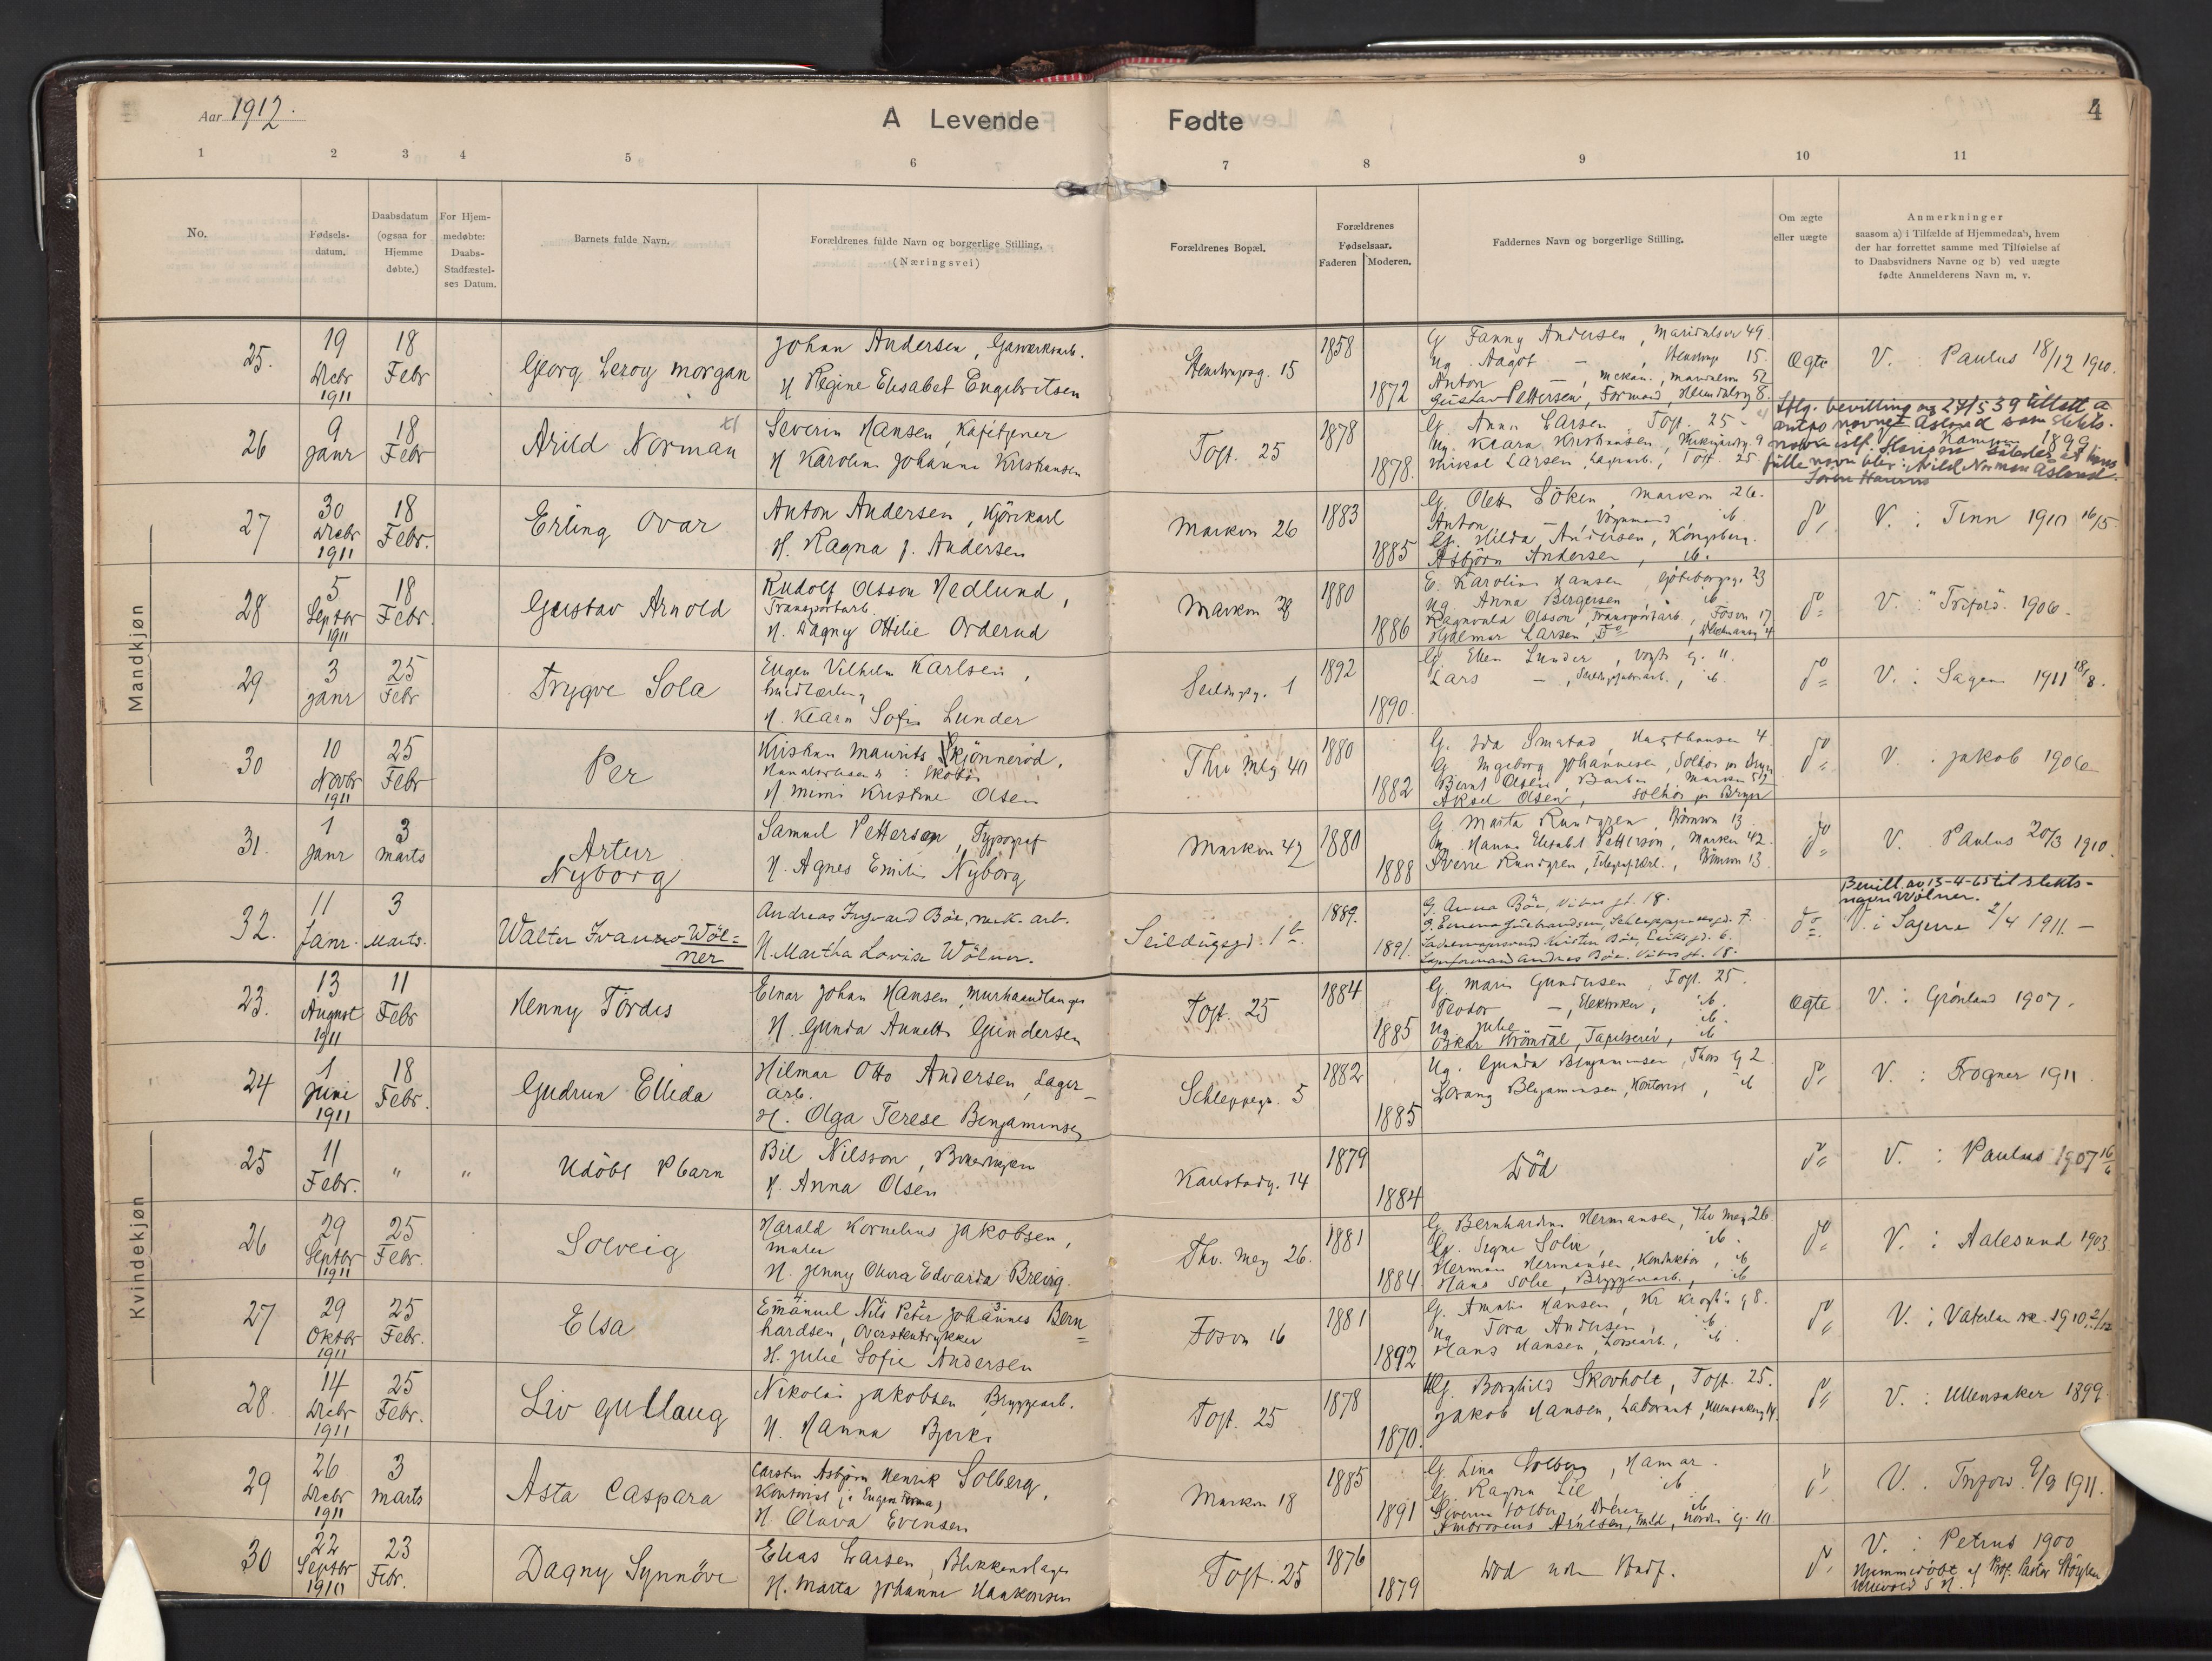 Aar 1912.
A Levende Fødte
4
1 2 3 4 5 6 7 8 9 10 11
No.
Fødsels-
datum.
Daabsdatum
(ogsaa for
Hjemme
døbte.)
For Hjem-
medøbte:
Daabs-
Stadfæstel-
ses Datum.
Barnets fulde Navn.
Forældrenes fulde Navn og borgerlige Stilling.
(Næringsvei)
Forældrenes Bopæl.
Forældrenes
Fødselsaar.
Faderen Moderen.
Faddernes Navn og borgerlige Stilling.
Om ægte
eller uægte
Anmerkninger
saasom a) i Tilfælde af Hjemmedaab, hvem
der har forrettet samme med Tilføielse af
to Daabsvidners Navne og b) ved uægte
fødte Anmelderens Navn m. v.
Mandkjøn
25.
19 Decbr 1911
18 Febr
Georg Leroy Morgan
Johan Andersen, Gasverksarb.
H. Regine Elisabet Engebritsen
15
1858
1872
G. Fanny Andersen, Maridalsvn 49.
Ug. Aagot — 15.
Anton —, Mekan., Maridalsvn 52
Gustav Pettersen, Formand, 8.
Ægte
V. : Paulus 18/12 1910.
26
9 Janr
18 Febr
Arild Norman
Severin Hansen, Kafétjener
H. Karoline Johanne Kristiansen
Toft. 25
1878
1878.
G. Anna Larsen, Toft. 25 -
Ug. Klara Kristiansen, 9
Mikal Larsen, Lagerarb., Toft. 25.
Iflg. bevilling av 27/5 39 tillatt å
anta navnet Åsland som slekts-
navn istf. Hansen således at hans
fulle navn blir: Arild Norman Åsland.
V. : Kampen 1899
27
30 Decbr 1911
18 Febr.
Erling Ovar
Anton Andersen, Kjörekarl
H. Ragna J. Andersen
Markvn 26
1883
1885
G. Olette Löken, Markvn 26.
Anton — Vognmand ib
G. Hilda Andersen, Kongsberg.
Asbjörn Andersen, ib.
do
V. : Tinn 1910 16/5.
28
5 Septbr 1911
18 Febr.
Gustav Arnold
Rudolf Olsson Hedlund,
Transportarb.
H. Dagny Ottilie Orderud
Markvn 28
1880
1886
E. Karoline Hansen, Göteborggt. 23
Ug. Anna Bergersen, ib.
Ragnvald Olsson, Transportarb., Fossvn 17
Hjalmar Larsen, Do, 4
do
V. : "Trefold". 1906.
29
3 Janr
25 Febr
Trygve Sola
Eugen Vilhelm Karlsen,
Smedlærling
H. Klara Sofie Lunder
Seildugsg. 1
1892
1890.
G. Ellen Lunder, Vogts g. 11.
Lars —, Seildugsfabrikarb., ib
do
V. : Sagene 1911 18/8.
30
10 Novbr 1911
25 Febr
Per
Kristian Maurits Skjönneröd,
H. Mimi Kristine Olsen
Thv Mey 40
1880
1882
G. Ida Smestad, 4.
G. Ingeborg Johannesen, Solhöi pr Bryn
Bernt Olsen, Barber, Markvn 52
Aksel Olsen, Solhöi pr Bryn
do
V. : Jakob 1906
31.
1 Janr
3 Marts
Artur
Nyborg
Samuel Pettersen, Typograf
H. Agnes Emilie Nyborg
Markvn 42
1880
1888
G. Marta Rundgren, 13
Ug. Hanna Elisabet Petterson, Markvn 42.
Sverre Rundgren, Telegrafarb., 13.
do
V. Paulus 20/3 1910.
32.
11 Janr.
3 Marts.
Walter Ivano Wöl=
ner
Andreas Ingvard Böe, mek. arb.
H. Martha Lovise Wölner.
Seildugsgd. 1 b.
1889.
1891.
G. Anna Böe, Vibes gt. 18.
G. Emma Gulbrandsen, Schleppegrellsgd. 7.
Sadelmagersvend Kristen Böe, Eriks gd. 6.
Lagerformand Andreas Böe. Vibes gt. 18.
do
Bevill. av 13-4-65 til slekts-
navn Wølner.
V. i Sagene 2/4 1911 —
Kvindekjøn
23.
13 August 1911
11 Febr
Henny Tordis
Einar Johan Hansen, Murhaandlanger
H. Gunda Annette Gundersen
Toft. 25
1884
1885
G. Marie Gundersen, Toft. 25.
Teodor —, Elektriker, ib.
Ug. Julie — ib.
Oskar Strömdal, Tapetserer, ib
Ægte
V. : Grönland 1907.
24
1 Juni 1911
18 Febr.
Gudrun Elleda
Hilmar Otto Andersen, Lager-
arb.
H. Olga Terese Benjaminsen
Schleppegr. 5
1882
1885
Ug. Gunda Benjaminsen, Thors g 2.
Lorang Benjaminsen, Kontorist, ib
do
V. : Frogner 1911.
25
11 Febr.
" "
Udöbt Pbarn
Bil Nilsson,
H. Anna Olsen
Karlstadg. 14
1879
1884
Död
do
V. : Paulus 1907 16/6
26
29 Septbr 1911
25 Febr.
Solveig
Harald Kornelius Jakobsen,
Maler
H. Jenny Olava Edvarda Breivig.
Thv. Mey 26.
1881
1884
G. Bernhardine Hermansen, Thv Mey 26.
G. Signe Solie, ib.
Herman Hermansen, Konduktör, ib
Hans Solie, Bryggeriarb., ib
do
V. : Aalesund 1903
27
29 Oktbr 1911
25 Febr.
Elsa
Emanuel Nils Peter Johannes Bern=
hardsen, Overstentrykker
H. Julie Sofie Andersen
Fossvn 16
1881
1892
G. Amalie Hansen, Kr Kroghs g 8.
Ug Tora Andersen, ib.
Hans Hansen, Lossearb., ib.
do
V. : Vaterlan 1910 2/12
28.
14 Decbr 1911
25 Febr.
Liv Gullaug
Nikolai Jakobsen, Bryggearb.
H. Hanna Bjerke
Toft. 25
1878
1870.
Ug. Borghild Skovholt, Toft. 25.
Jakob Hansen, Laborant, 14.
do
V. : Ullensaker 1899.
29
26 Decbr 1911
3 Marts
Asta Caspara
Carsten Asbjörn Henrik Solberg,
Kontorist
H. Olava Evensen
Markvn 18
1885
1891
G. Lina Solberg, Hamar.
G. Ragna Lie ib
Severin Solberg, ib
Ambrosius Arnesen, g. 10
do
V. : Trefold. 9/9 1911.
30
22 Septbr 1910
23 Febr.
Dagny Synnöve
Elias Larsen, Blikkenslager
H. Marta Johanne Haakonsen
Toft. 25
1876
1879
Död uden Stadf.
do
V. : Petrus 1900
Hjemmedöbt af Prof. Pastor Störjohan